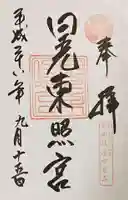 奉拝
日光東照宮
平成二十八年九月十五日